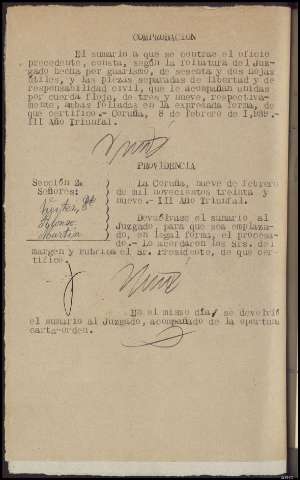 COMPROBACION
El sumario a que se contrae el oficio
precedente, consta, según la foliatura del Juz-
gado hecha por guarismo, de sesenta y dos hojas
útiles, y las piezas separadas de libertad y de
responsabilidad civil, que le acompañan unidas
por cuerda floja, de tres y nueve, respectiva-
mente, ambas foliadas en la expresada forma, de
que certifico.- Coruña, 8 de febrero de 1,939.-
III Año Triunfal.
PROVIDENCIA
Sección 2ª
Señores:
La Coruña, nueve de febrero
de mil novecientos treinta y
nueve.- III Año Triunfal.
Devuélvase el sumario al
Juzgado, para que sea emplaza-
do, en legal forma, el procesa-
do.- Lo acordaron los Srs. del
margen y rubrica el Sr. Presidente, de que cer-
tifico.
En el mismo día, se devolvió
el sumario al Juzgado, acompañado de la oportuna
carta-orden.